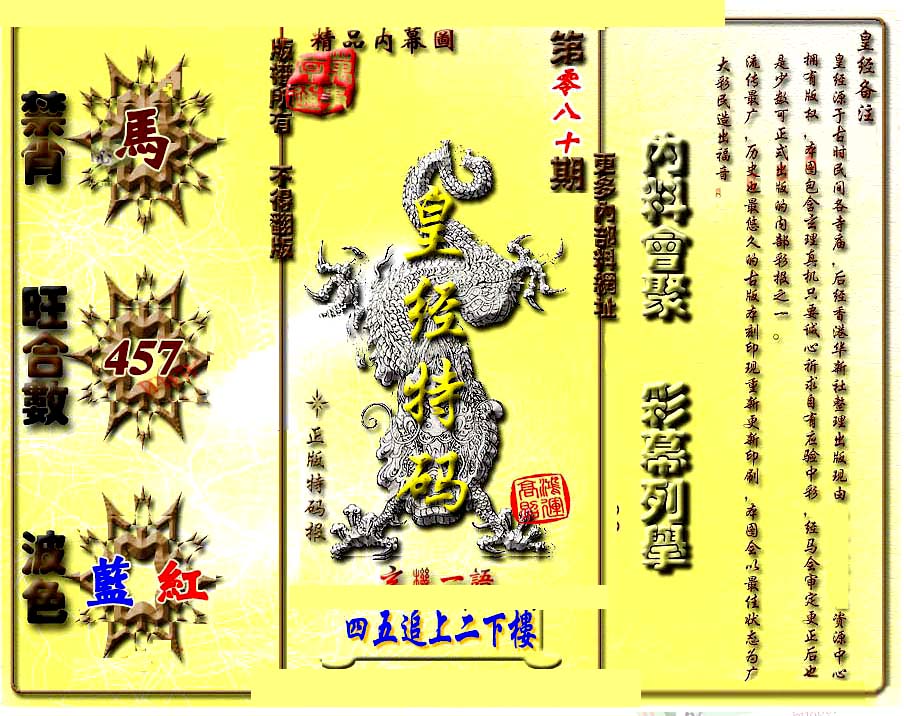 皇经备注
皇经源于古时民间各寺庙，后经香港华新社整理出版现由
資源中心
拥有版权，本图包含玄理真机只要诚心祈求自有应验中彩，经马会审定更正后也
是少数可正式出版的内部彩报之一。
流传最广，历史也最悠久的古版本刻印现重新更新印刷，本图会以最佳状态为广
大彩民造出福音
内料會聚
彩幕列舉
更多內部料網址
第零八十期
精品内幕圖
皇经特码
正版特码报
鴻運
高照
玄機一語
四五追上二下樓
版權所有 不得翻版
禁肖
馬
旺合數
457
波色
藍 紅